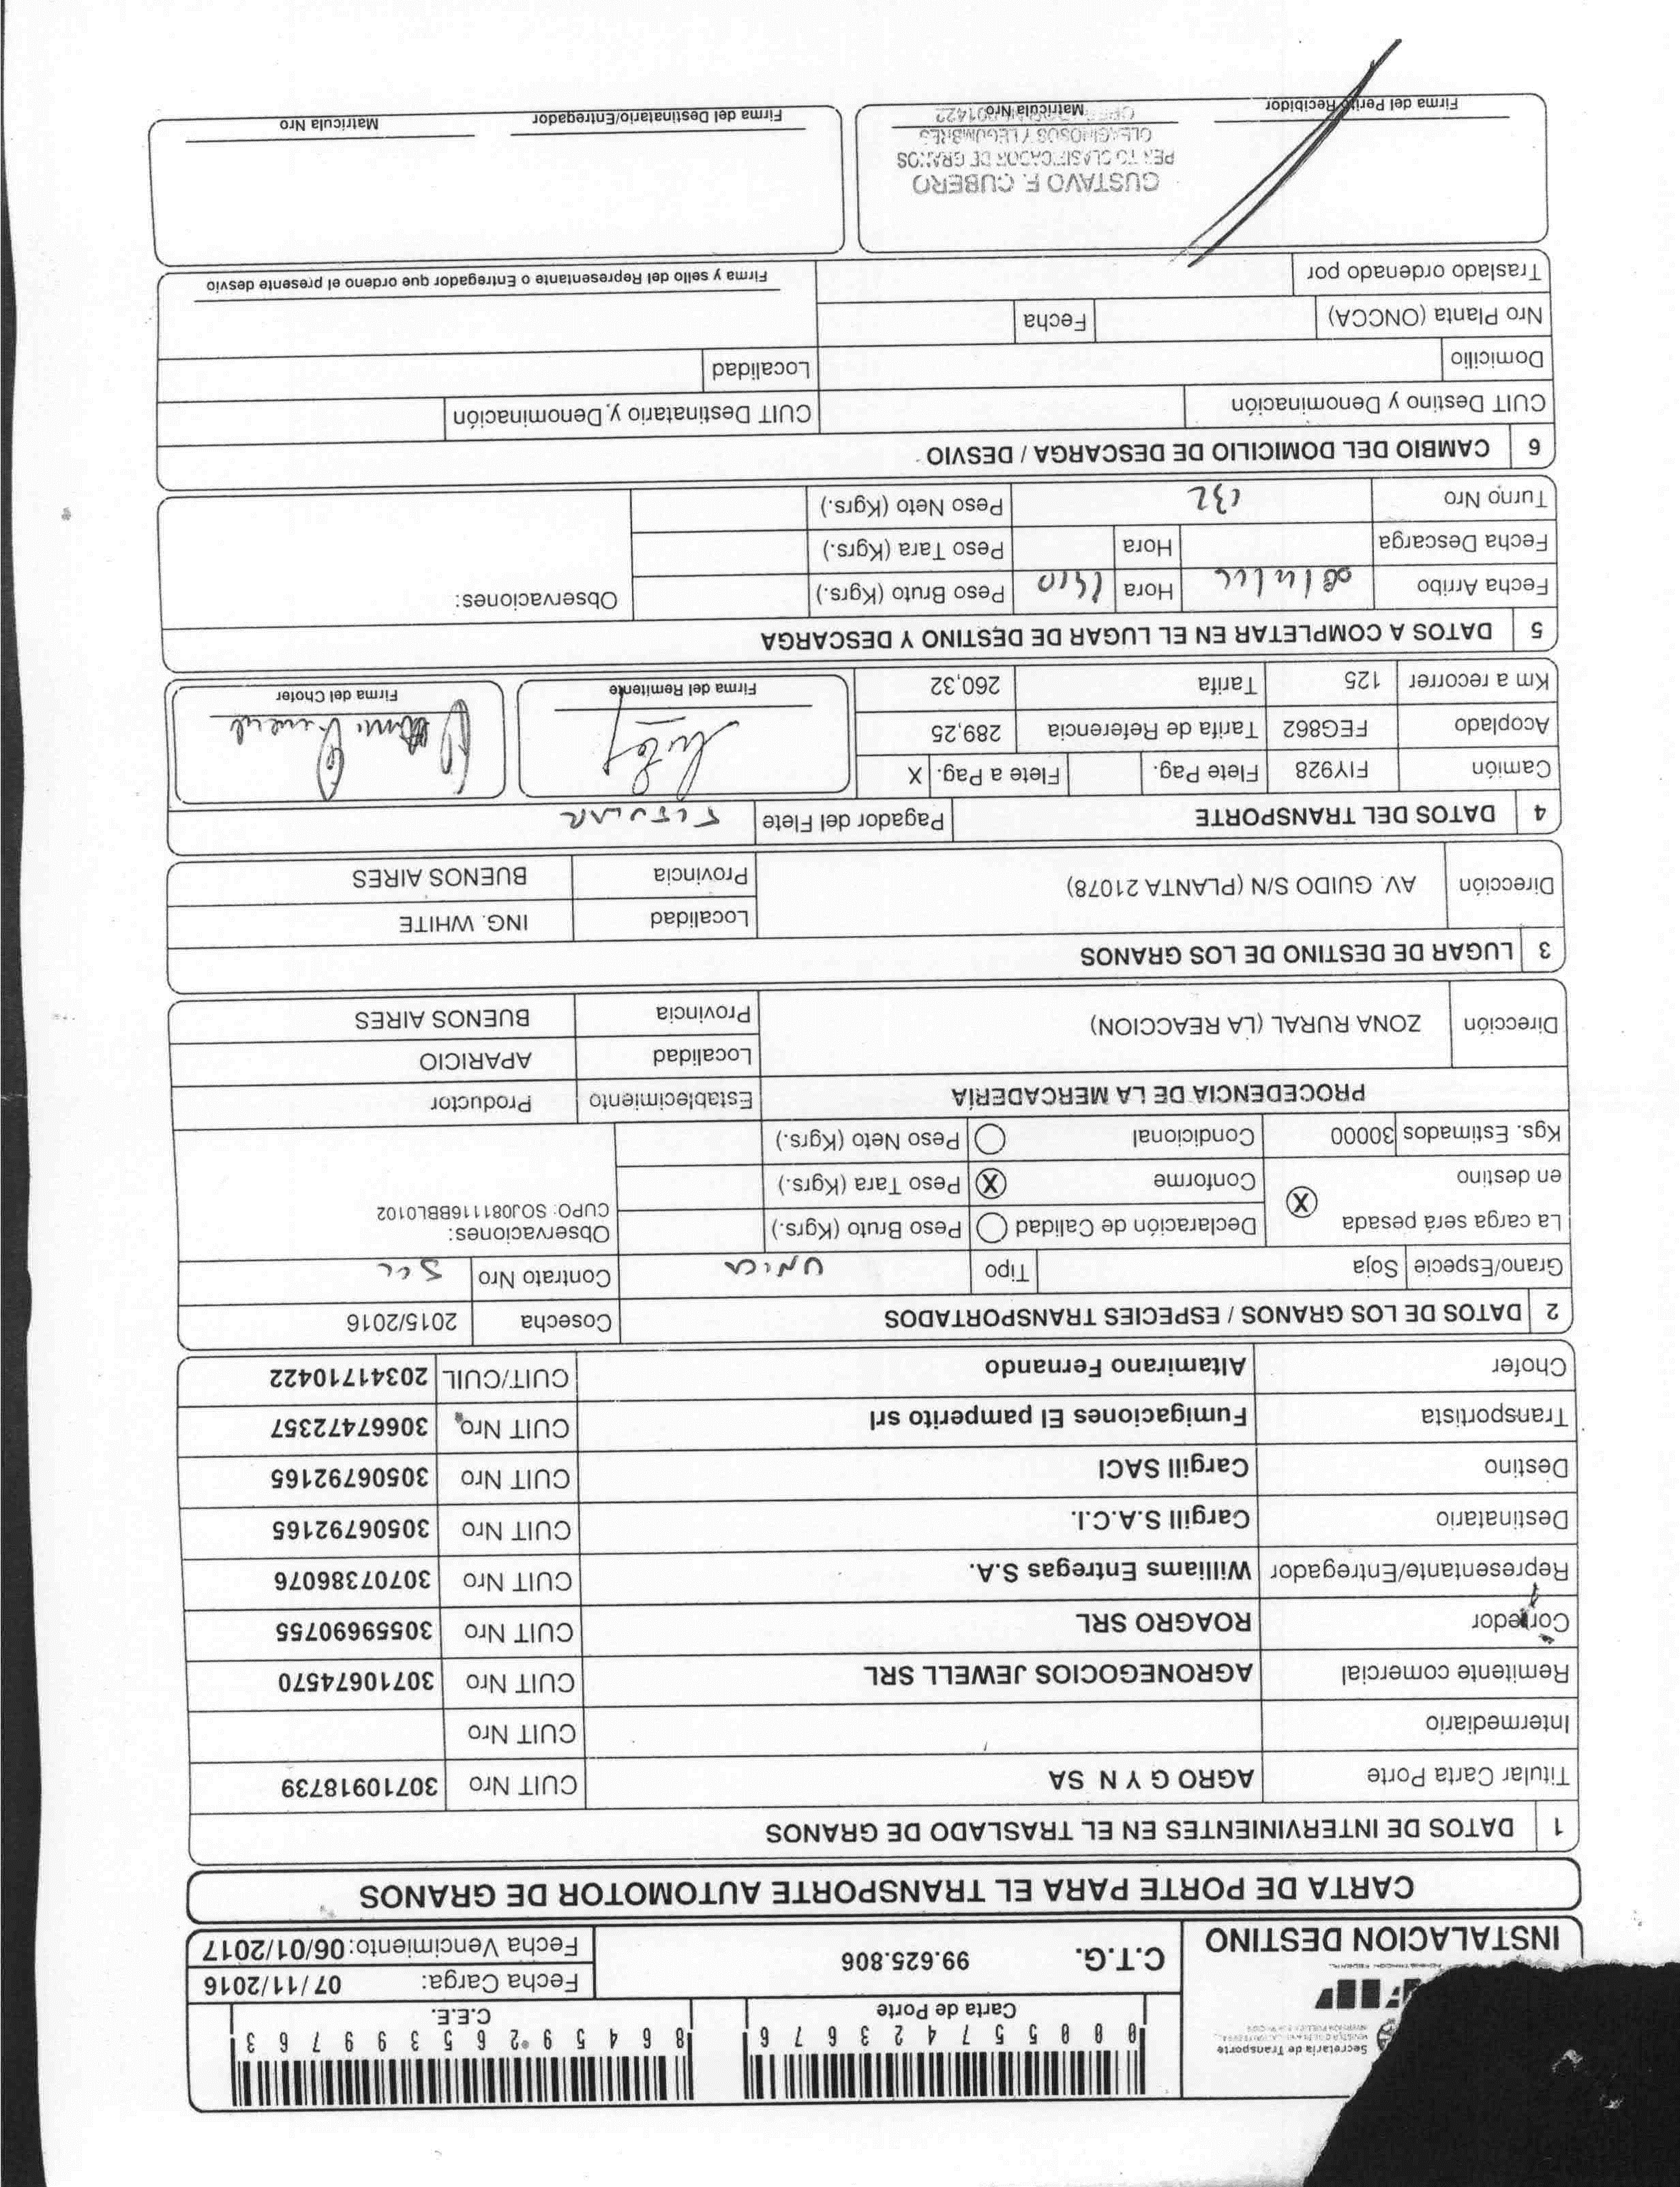 Secretaría de Transporte
INSTALACION DESTINO
0 0 0 5 5 7 4 2 3 6 7 6
Carta de Porte
8 6 4 5 9 2 6 5 3 9 9 7 6 3
C.E.E.
C.T.G. 99.625.806
Fecha Carga: 07/11/2016
Fecha Vencimiento: 06/01/2017
CARTA DE PORTE PARA EL TRANSPORTE AUTOMOTOR DE GRANOS
1 DATOS DE INTERVINIENTES EN EL TRASLADO DE GRANOS
Titular Carta Porte AGRO G Y N SA CUIT Nro 30710918739
Intermediario CUIT Nro
Remitente comercial AGRONEGOCIOS JEWELL SRL CUIT Nro 30710674570
Corredor ROAGRO SRL CUIT Nro 30559690755
Representante/Entregador Williams Entregas S.A. CUIT Nro 30707386076
Destinatario Cargill S.A.C.I. CUIT Nro 30506792165
Destino Cargill SACI CUIT Nro 30506792165
Transportista Fumigaciones El pamperito srl CUIT Nro 30667472357
Chofer Altamirano Fernando CUIT/CUIL 20341710422
2 DATOS DE LOS GRANOS / ESPECIES TRANSPORTADOS Cosecha 2015/2016
Grano/Especie Soja Tipo UNICA Contrato Nro
La carga será pesada en destino X
Declaración de Calidad Peso Bruto (Kgrs.)
Conforme X Peso Tara (Kgrs.)
Kgs. Estimados 30000 Condicional Peso Neto (Kgrs.)
Observaciones:
CUPO: SOJ081116BBL0102
PROCEDENCIA DE LA MERCADERÍA Establecimiento Productor
Dirección ZONA RURAL (LA REACCION) Localidad APARICIO
Provincia BUENOS AIRES
3 LUGAR DE DESTINO DE LOS GRANOS
Dirección AV. GUIDO S/N (PLANTA 21078) Localidad ING. WHITE
Provincia BUENOS AIRES
4 DATOS DEL TRANSPORTE Pagador del Flete TITULAR
Camión FIY928 Flete Pag. Flete a Pag. X
Acoplado FEG862 Tarifa de Referencia 289,25
Km a recorrer 125 Tarifa 260,32
Firma del Remitente
Firma del Chofer
5 DATOS A COMPLETAR EN EL LUGAR DE DESTINO Y DESCARGA
Fecha Arribo Hora 1310 Peso Bruto (Kgrs.) Observaciones:
Fecha Descarga Hora Peso Tara (Kgrs.)
Turno Nro 132 Peso Neto (Kgrs.)
6 CAMBIO DEL DOMICILIO DE DESCARGA / DESVIO
CUIT Destino y Denominación CUIT Destinatario y Denominación
Domicilio Localidad
Nro Planta (ONCCA) Fecha
Traslado ordenado por
Firma y sello del Representante o Entregador que ordeno el presente desvio
GUSTAVO F. CUBERO
PERITO CLASIFICADOR DE GRANOS
OLEAGINOSOS Y LEGUMBRES
Firma del Perito Recibidor Matrícula Nro
Firma del Destinatario/Entregador Matrícula Nro